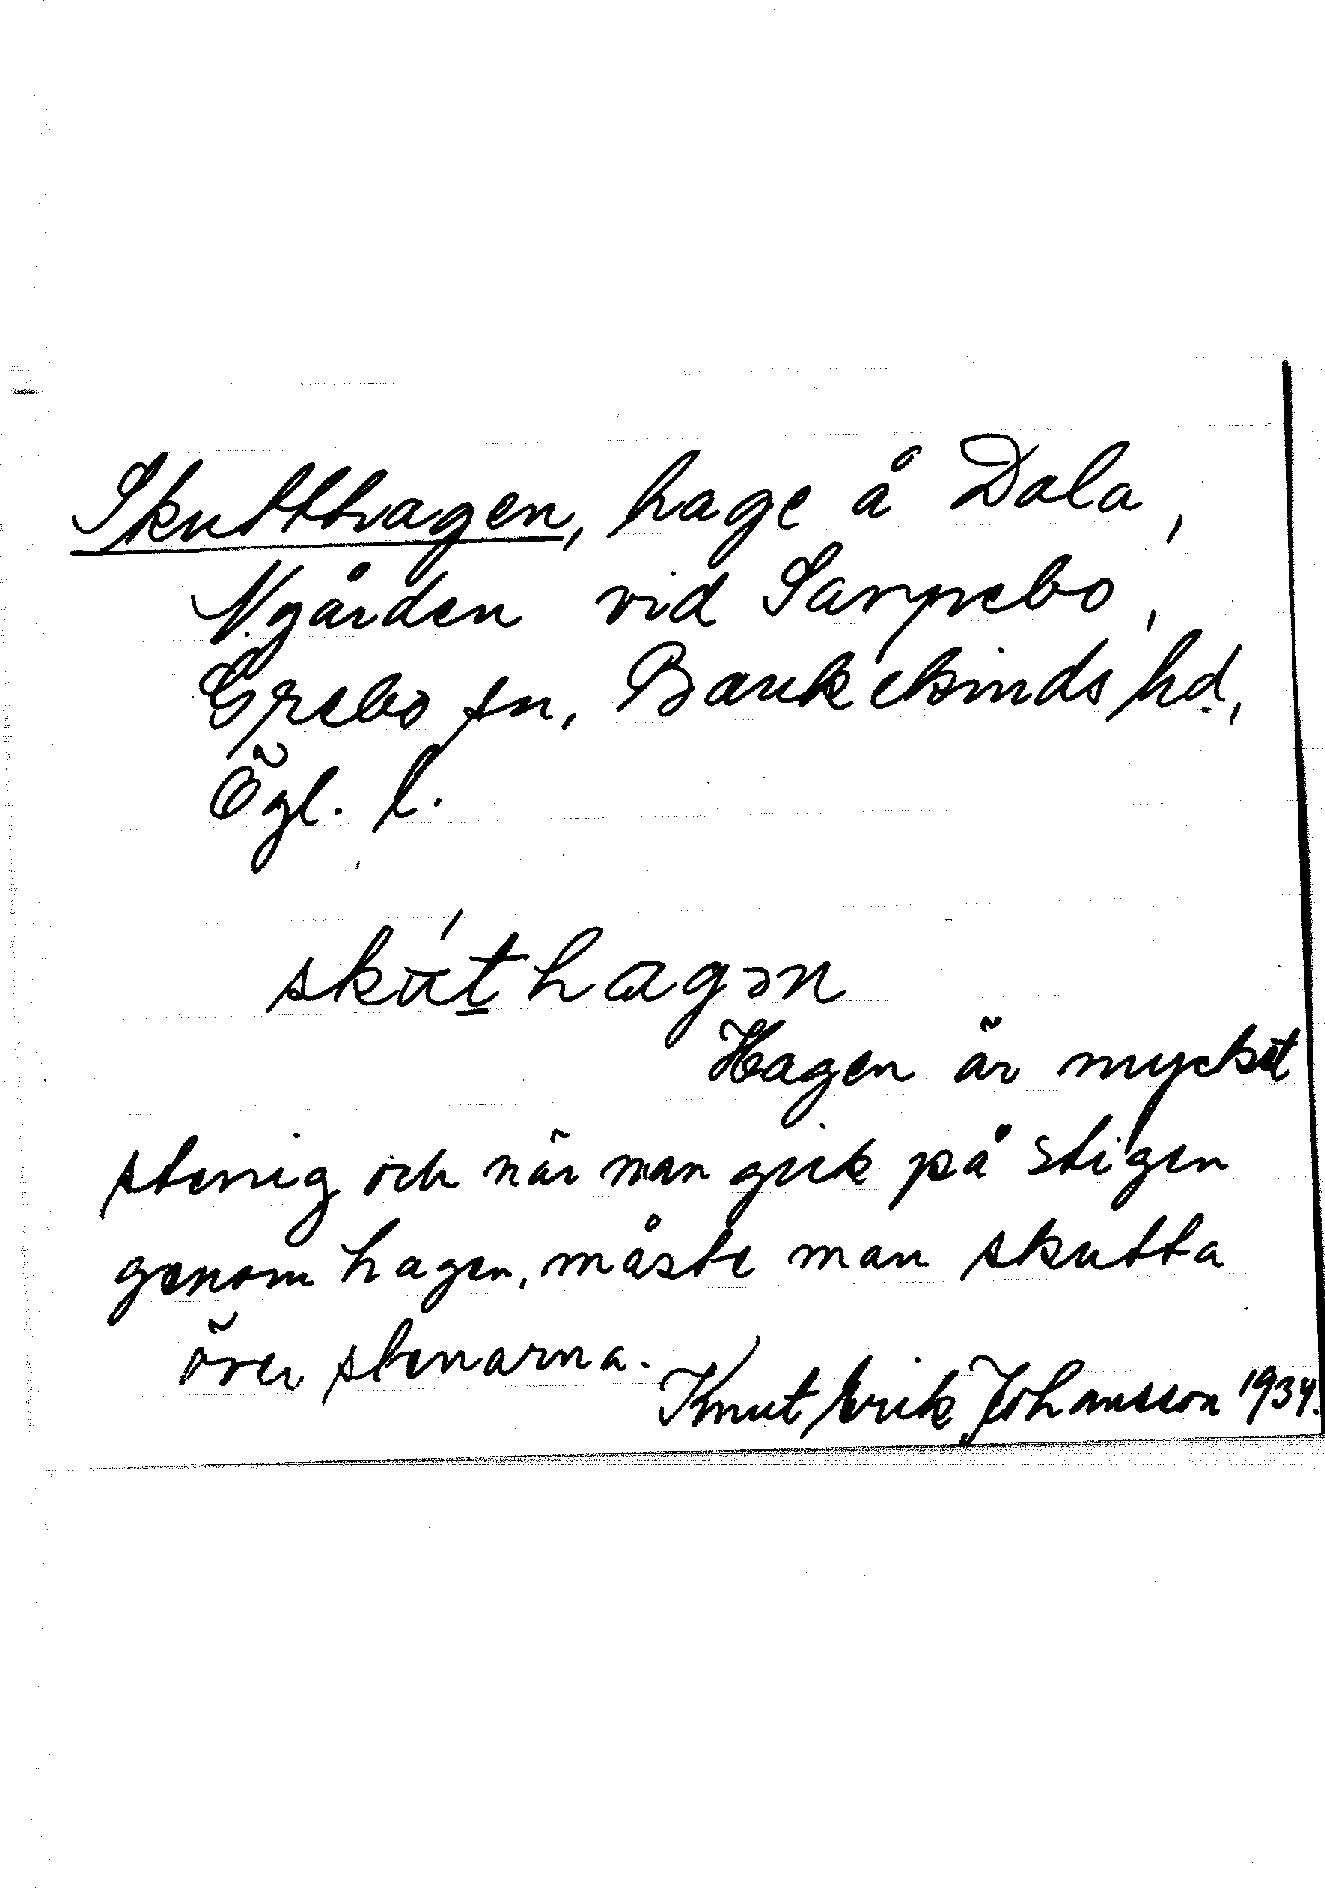 Skutthagen, hage å Dala,
N.gården vid
Grebo sn, Bankekinds hd.,
Ögl. l.
Hagen är mycket
stenig och när man gick på stigen
genom hagen, måste man skutta
över stenarna.
Knut Erik Johansson 1934.